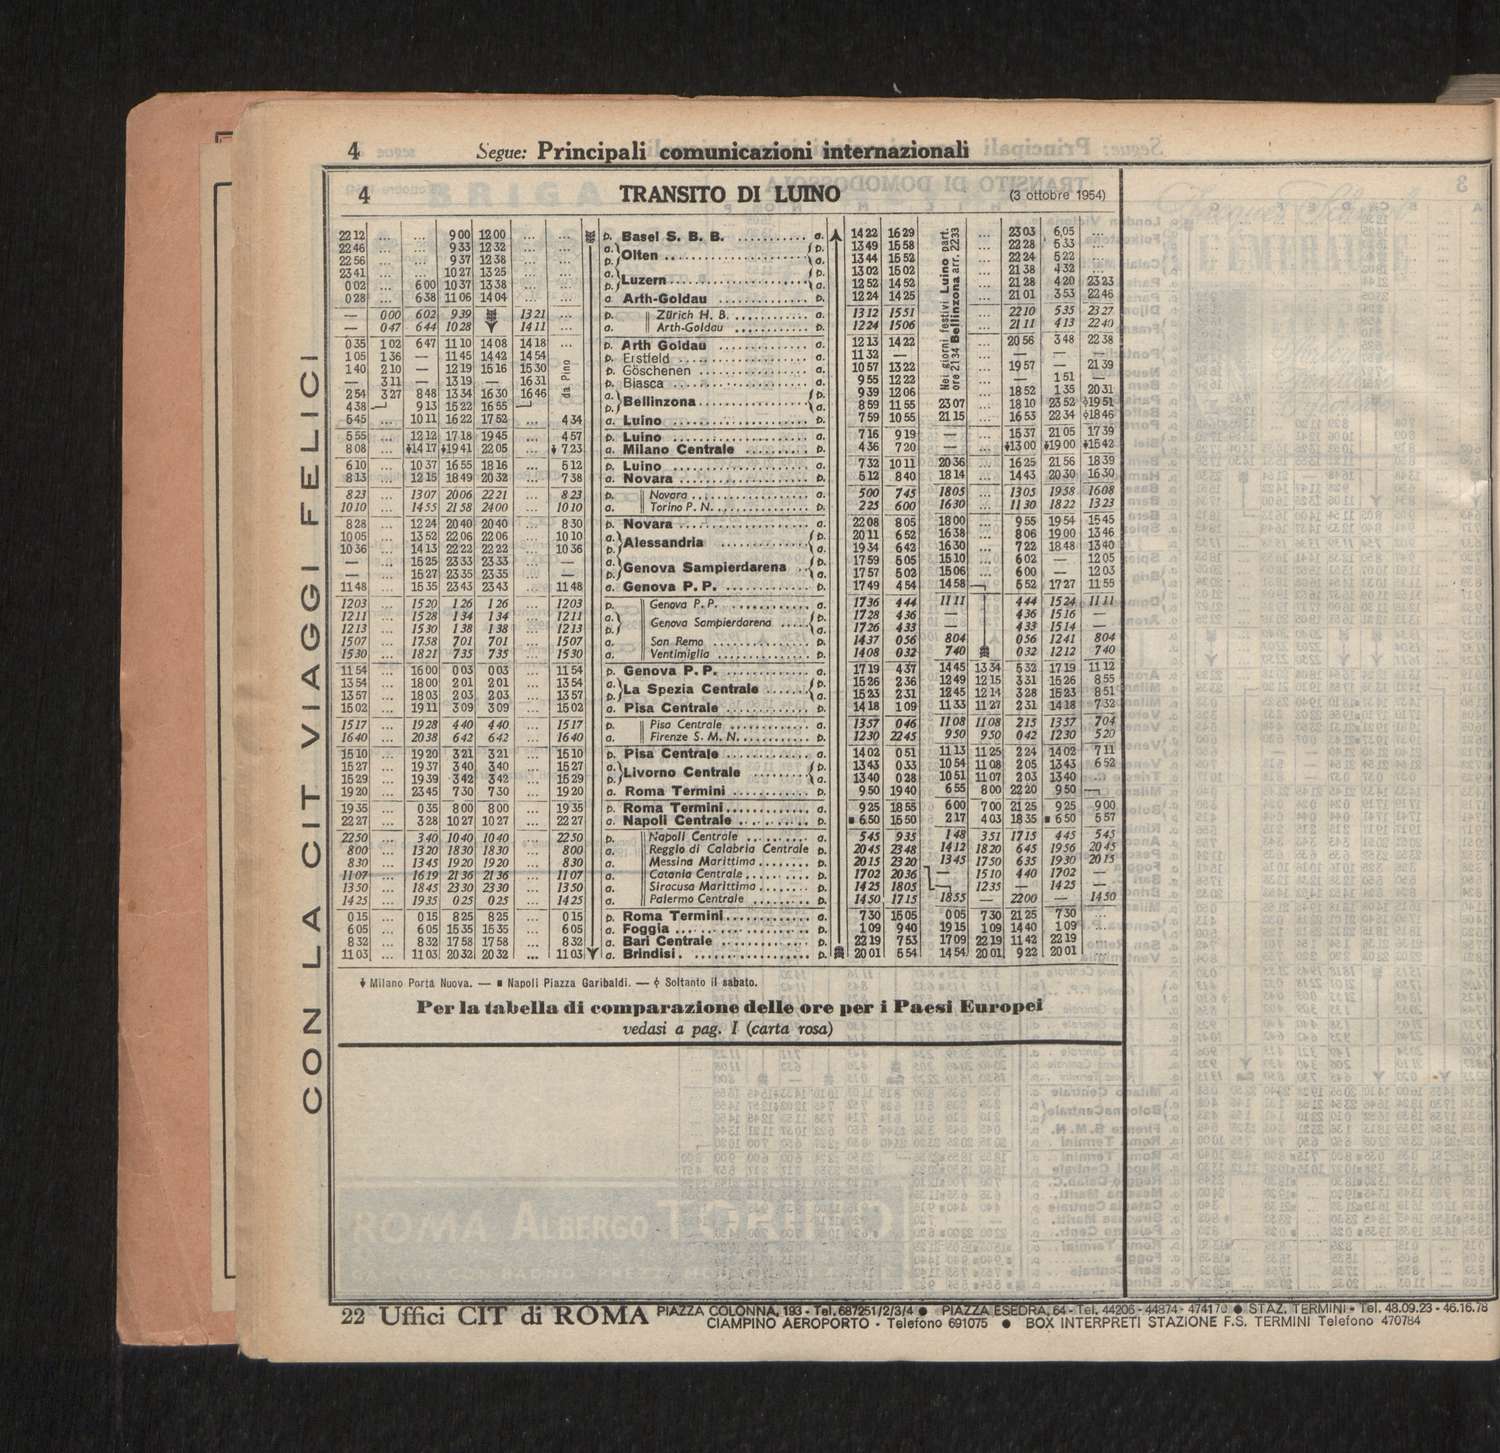 4 Segue: Principali comunicazioni internazionali
4 TRANSITO DI LUINO (3 ottobre 1954)
22 12 ... ... 9 00 12 00 ... ... p. Basel S. B. B. a. 14 22 16 29 ... 23 03 6 05 ...
22 46 ... ... 9 33 12 32 ... ... a. Olten p. 13 49 15 58 ... 22 28 5 33 ...
22 56 ... ... 9 37 12 38 ... ... p. a. 13 44 15 52 ... 22 24 5 22 ...
23 41 ... ... 10 27 13 25 ... ... a. Luzern p. 13 02 15 02 ... 21 38 4 32 ...
0 02 ... 6 00 10 37 13 38 ... ... p. a. 12 52 14 52 ... 21 28 4 20 23 23
0 28 ... 6 38 11 06 14 04 ... ... a. Arth-Goldau p. 12 24 14 25 ... 21 01 3 53 22 46
— 0 00 6 02 9 39 13 21 ... p. Zürich H. B. a. 13 12 15 51 ... 22 10 5 35 23 27
— 0 47 6 44 10 28 14 11 ... a. Arth-Goldau p. 12 24 15 06 ... 21 11 4 13 22 40
0 35 1 02 6 47 11 10 14 08 14 18 ... p. Arth Goldau a. 12 13 14 22 ... 20 56 3 48 22 38
1 05 1 36 — 11 45 14 42 14 54 p. Erstfeld a. 11 32 — ... — — —
1 40 2 10 — 12 19 15 16 15 30 p. Göschenen a. 10 57 13 22 ... 19 57 — 21 39
— 3 11 — 13 19 — 16 31 p. Biasca a. 9 55 12 22 ... — 1 51 —
2 54 3 27 8 48 13 34 16 30 16 46 a. Bellinzona p. 9 39 12 06 ... 18 52 1 35 20 31
4 38 9 13 15 22 16 55 p. a. 8 59 11 55 23 07 ... 18 10 23 52 ⌽19 51
5 45 ... 10 11 16 22 17 52 ... 4 34 a. Luino p. 7 59 10 55 21 15 ... 16 53 22 34 ⌽18 46
da Pino
Nei giorni festivi Luino part.
ore 21 34 Bellinzona arr. 22 33
5 55 ... 12 12 17 18 19 45 ... 4 57 p. Luino a. 7 16 9 19 — ... 15 37 21 05 17 39
8 08 ... 14 17 19 41 22 05 ... 7 23 a. Milano Centrale p. 4 36 7 20 — ... 13 00 19 00 15 42
6 10 ... 10 37 16 55 18 16 ... 5 12 p. Luino a. 7 32 10 11 20 36 ... 16 25 21 56 18 39
8 13 ... 12 15 18 49 20 32 ... 7 38 a. Novara p. 5 12 8 40 18 14 ... 14 43 20 30 16 30
8 23 ... 13 07 20 06 22 21 ... 8 23 p. Novara a. 5 00 7 45 18 05 ... 13 05 19 58 16 08
10 10 ... 14 55 21 58 24 00 ... 10 10 a. Torino P. N. p. 2 25 6 00 16 30 ... 11 30 18 22 13 23
8 28 ... 12 24 20 40 20 40 ... 8 30 p. Novara a. 22 08 8 05 18 00 ... 9 55 19 54 15 45
10 05 ... 13 52 22 06 22 06 ... 10 10 a. Alessandria p. 20 11 6 52 16 38 ... 8 06 19 00 13 46
10 36 ... 14 13 22 22 22 22 ... 10 36 p. a. 19 34 6 42 16 30 ... 7 22 18 48 13 40
— ... 15 25 23 33 23 33 ... — a. Genova Sampierdarena p. 17 59 5 05 15 10 ... 6 02 — 12 05
— ... 15 27 23 35 23 35 ... — p. a. 17 57 5 02 15 06 ... 6 00 — 12 03
11 48 ... 15 35 23 43 23 43 ... 11 48 a. Genova P. P. p. 17 49 4 54 14 58 5 52 17 27 11 55
12 03 ... 15 20 1 26 1 26 ... 12 03 p. Genova P. P. a. 17 36 4 44 11 11 4 44 15 24 11 11
12 11 ... 15 28 1 34 1 34 ... 12 11 a. Genova Sampierdarena p. 17 28 4 36 — 4 36 15 16 —
12 13 ... 15 30 1 38 1 38 ... 12 13 p. a. 17 26 4 33 — 4 33 15 14 —
15 07 ... 17 58 7 01 7 01 ... 15 07 a. San Remo p. 14 37 0 56 8 04 0 56 12 41 8 04
15 30 ... 18 21 7 35 7 35 ... 15 30 a. Ventimiglia p. 14 08 0 32 7 40 0 32 12 12 7 40
11 54 ... 16 00 0 03 0 03 ... 11 54 p. Genova P. P. a. 17 19 4 37 14 45 13 34 5 32 17 19 11 12
13 54 ... 18 00 2 01 2 01 ... 13 54 a. La Spezia Centrale p. 15 26 2 36 12 49 12 15 3 31 15 26 8 55
13 57 ... 18 03 2 03 2 03 ... 13 57 p. a. 15 23 2 31 12 45 12 14 3 28 15 23 8 51
15 02 ... 19 11 3 09 3 09 ... 15 02 a. Pisa Centrale p. 14 18 1 09 11 33 11 27 2 31 14 18 7 32
15 17 ... 19 28 4 40 4 40 ... 15 17 p. Pisa Centrale a. 13 57 0 46 11 08 11 08 2 15 13 57 7 04
16 40 ... 20 38 6 42 6 42 ... 16 40 a. Firenze S. M. N. p. 12 30 22 45 9 50 9 50 0 42 12 30 5 20
15 10 ... 19 20 3 21 3 21 ... 15 10 p. Pisa Centrale a. 14 02 0 51 11 13 11 25 2 24 14 02 7 11
15 27 ... 19 37 3 40 3 40 ... 15 27 a. Livorno Centrale p. 13 43 0 33 10 54 11 08 2 05 13 43 6 52
15 29 ... 19 39 3 42 3 42 ... 15 29 p. a. 13 40 0 28 10 51 11 07 2 03 13 40 ...
19 20 ... 23 45 7 30 7 30 ... 19 20 a. Roma Termini p. 9 50 19 40 6 55 8 00 22 20 9 50
19 35 ... 0 35 8 00 8 00 ... 19 35 p. Roma Termini a. 9 25 18 55 6 00 7 00 21 25 9 25 9 00
22 27 ... 3 28 10 27 10 27 ... 22 27 a. Napoli Centrale p. ■ 6 50 15 50 2 17 4 03 18 35 ■ 6 50 5 57
22 50 ... 3 40 10 40 10 40 ... 22 50 p. Napoli Centrale a. 5 45 9 35 1 48 3 51 17 15 4 45 5 45
8 00 ... 13 20 18 30 18 30 ... 8 00 a. Reggio di Calabria Centrale p. 20 45 23 48 14 12 18 20 6 45 19 56 20 45
8 30 ... 13 45 19 20 19 20 ... 8 30 a. Messina Marittima p. 20 15 23 20 13 45 17 50 6 35 19 30 20 15
11 07 ... 16 19 21 36 21 36 ... 11 07 a. Catania Centrale p. 17 02 20 36 — 15 10 4 40 17 02 —
13 50 ... 18 45 23 30 23 30 ... 13 50 a. Siracusa Marittima p. 14 25 18 05 — 12 35 — 14 25 —
14 25 ... 19 35 0 25 0 25 ... 14 25 a. Palermo Centrale p. 14 50 17 15 18 55 — 22 00 — 14 50
0 15 ... 0 15 8 25 8 25 ... 0 15 p. Roma Termini a. 7 30 15 05 0 05 7 30 21 25 7 30 ...
6 05 ... 6 05 15 35 15 35 ... 6 05 a. Foggia p. 1 09 9 40 19 15 1 09 14 40 1 09 ...
8 32 ... 8 32 17 58 17 58 ... 8 32 a. Bari Centrale p. 22 19 7 53 17 09 22 19 11 42 22 19 ...
11 03 ... 11 03 20 32 20 32 ... 11 03 a. Brindisi p. 20 01 6 54 14 54 20 01 9 22 20 01 ...
Milano Porta Nuova. — ■ Napoli Piazza Garibaldi. — ⌽ Soltanto il sabato.
Per la tabella di comparazione delle ore per i Paesi Europei
vedasi a pag. I (carta rosa)
CON LA CIT VIAGGI FELICI
22 Uffici CIT di ROMA PIAZZA COLONNA, 193 - Tel. 687251/2/3/4 ● PIAZZA ESEDRA, 64 - Tel. 44206 - 44874 - 474170 ● STAZ. TERMINI - Tel. 48.09.23 - 46.16.78
CIAMPINO AEROPORTO - Telefono 691075 ● BOX INTERPRETI STAZIONE F.S. TERMINI Telefono 470784